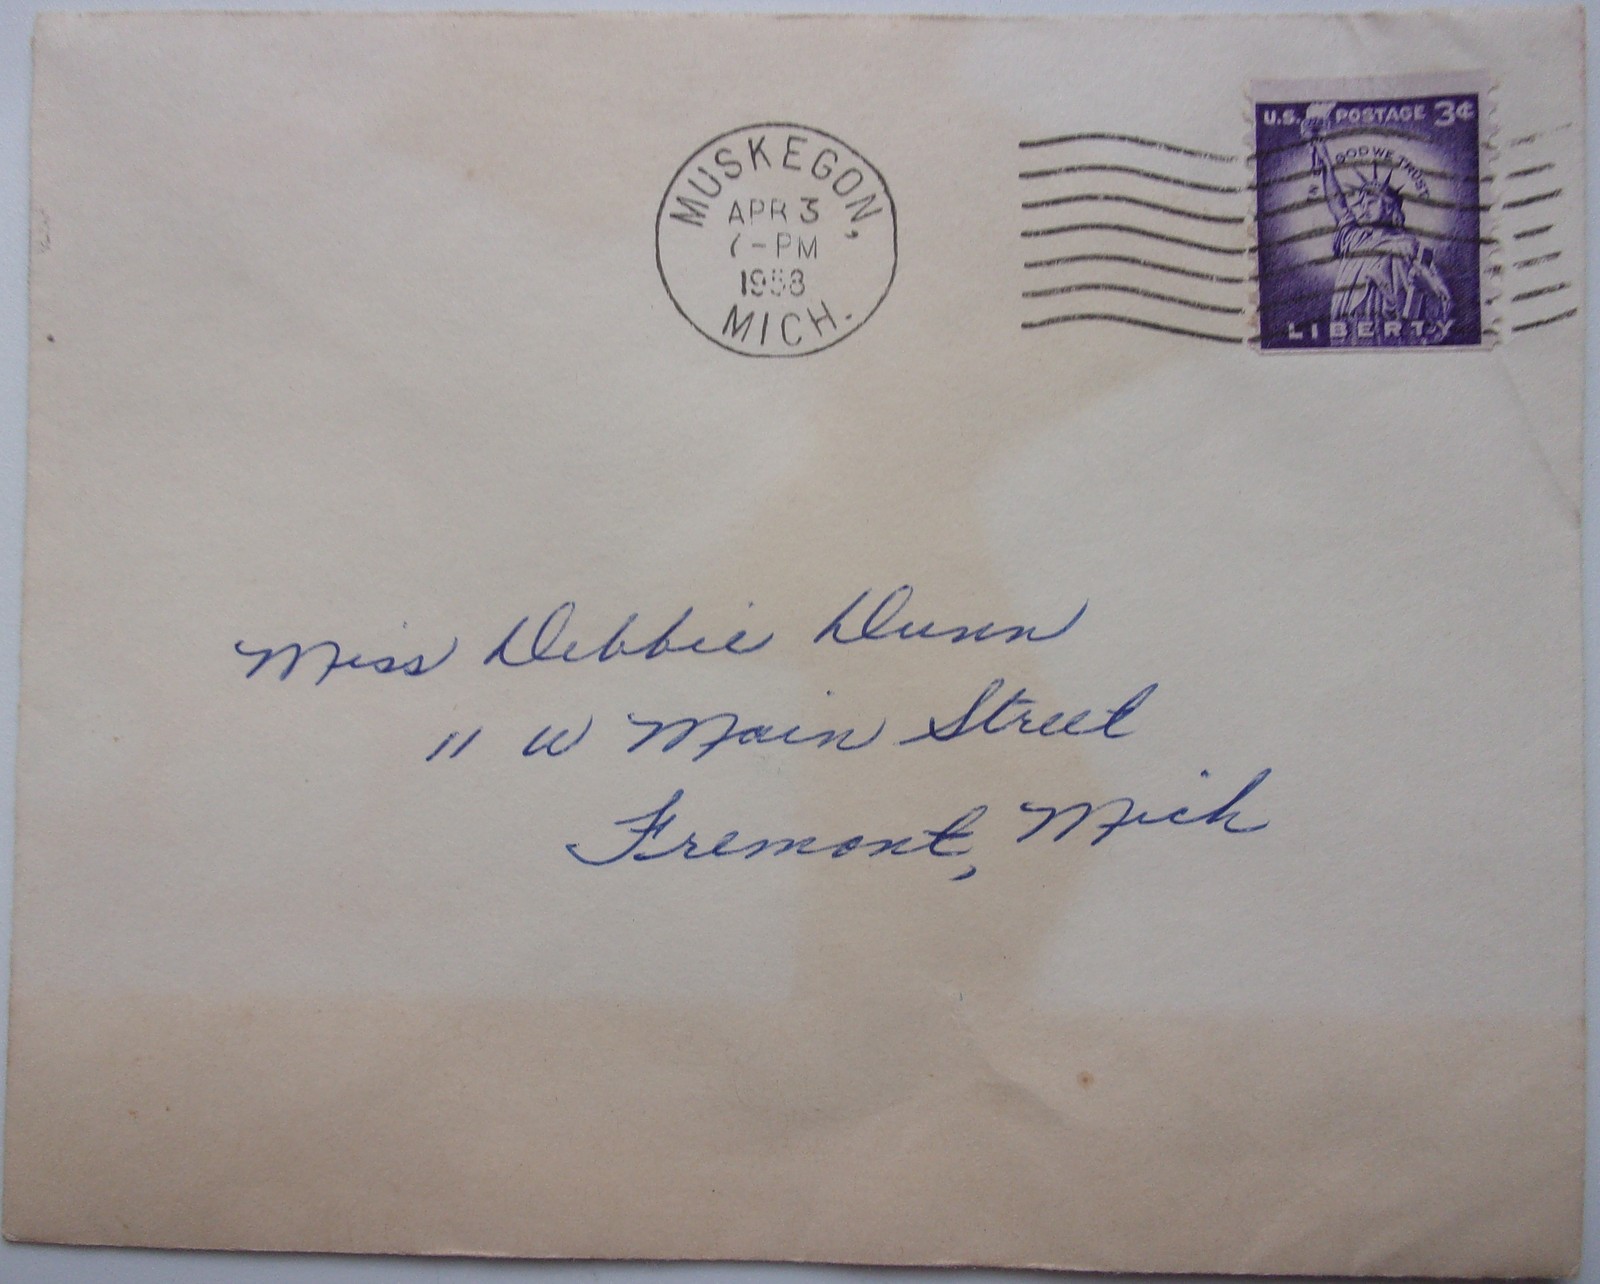 MUSKEGON,
APR 3
7-PM
1958
MICH.
U.S. POSTAGE 3¢
IN GOD WE TRUST
LIBERTY
Miss Debbie Dunn
11 W Main Street
Fremont, Mich